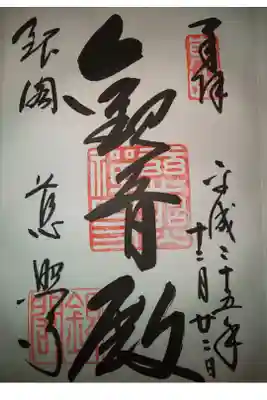 奉拝
平成二十五年
十二月廿二日
観音殿
銀閣 慈照寺